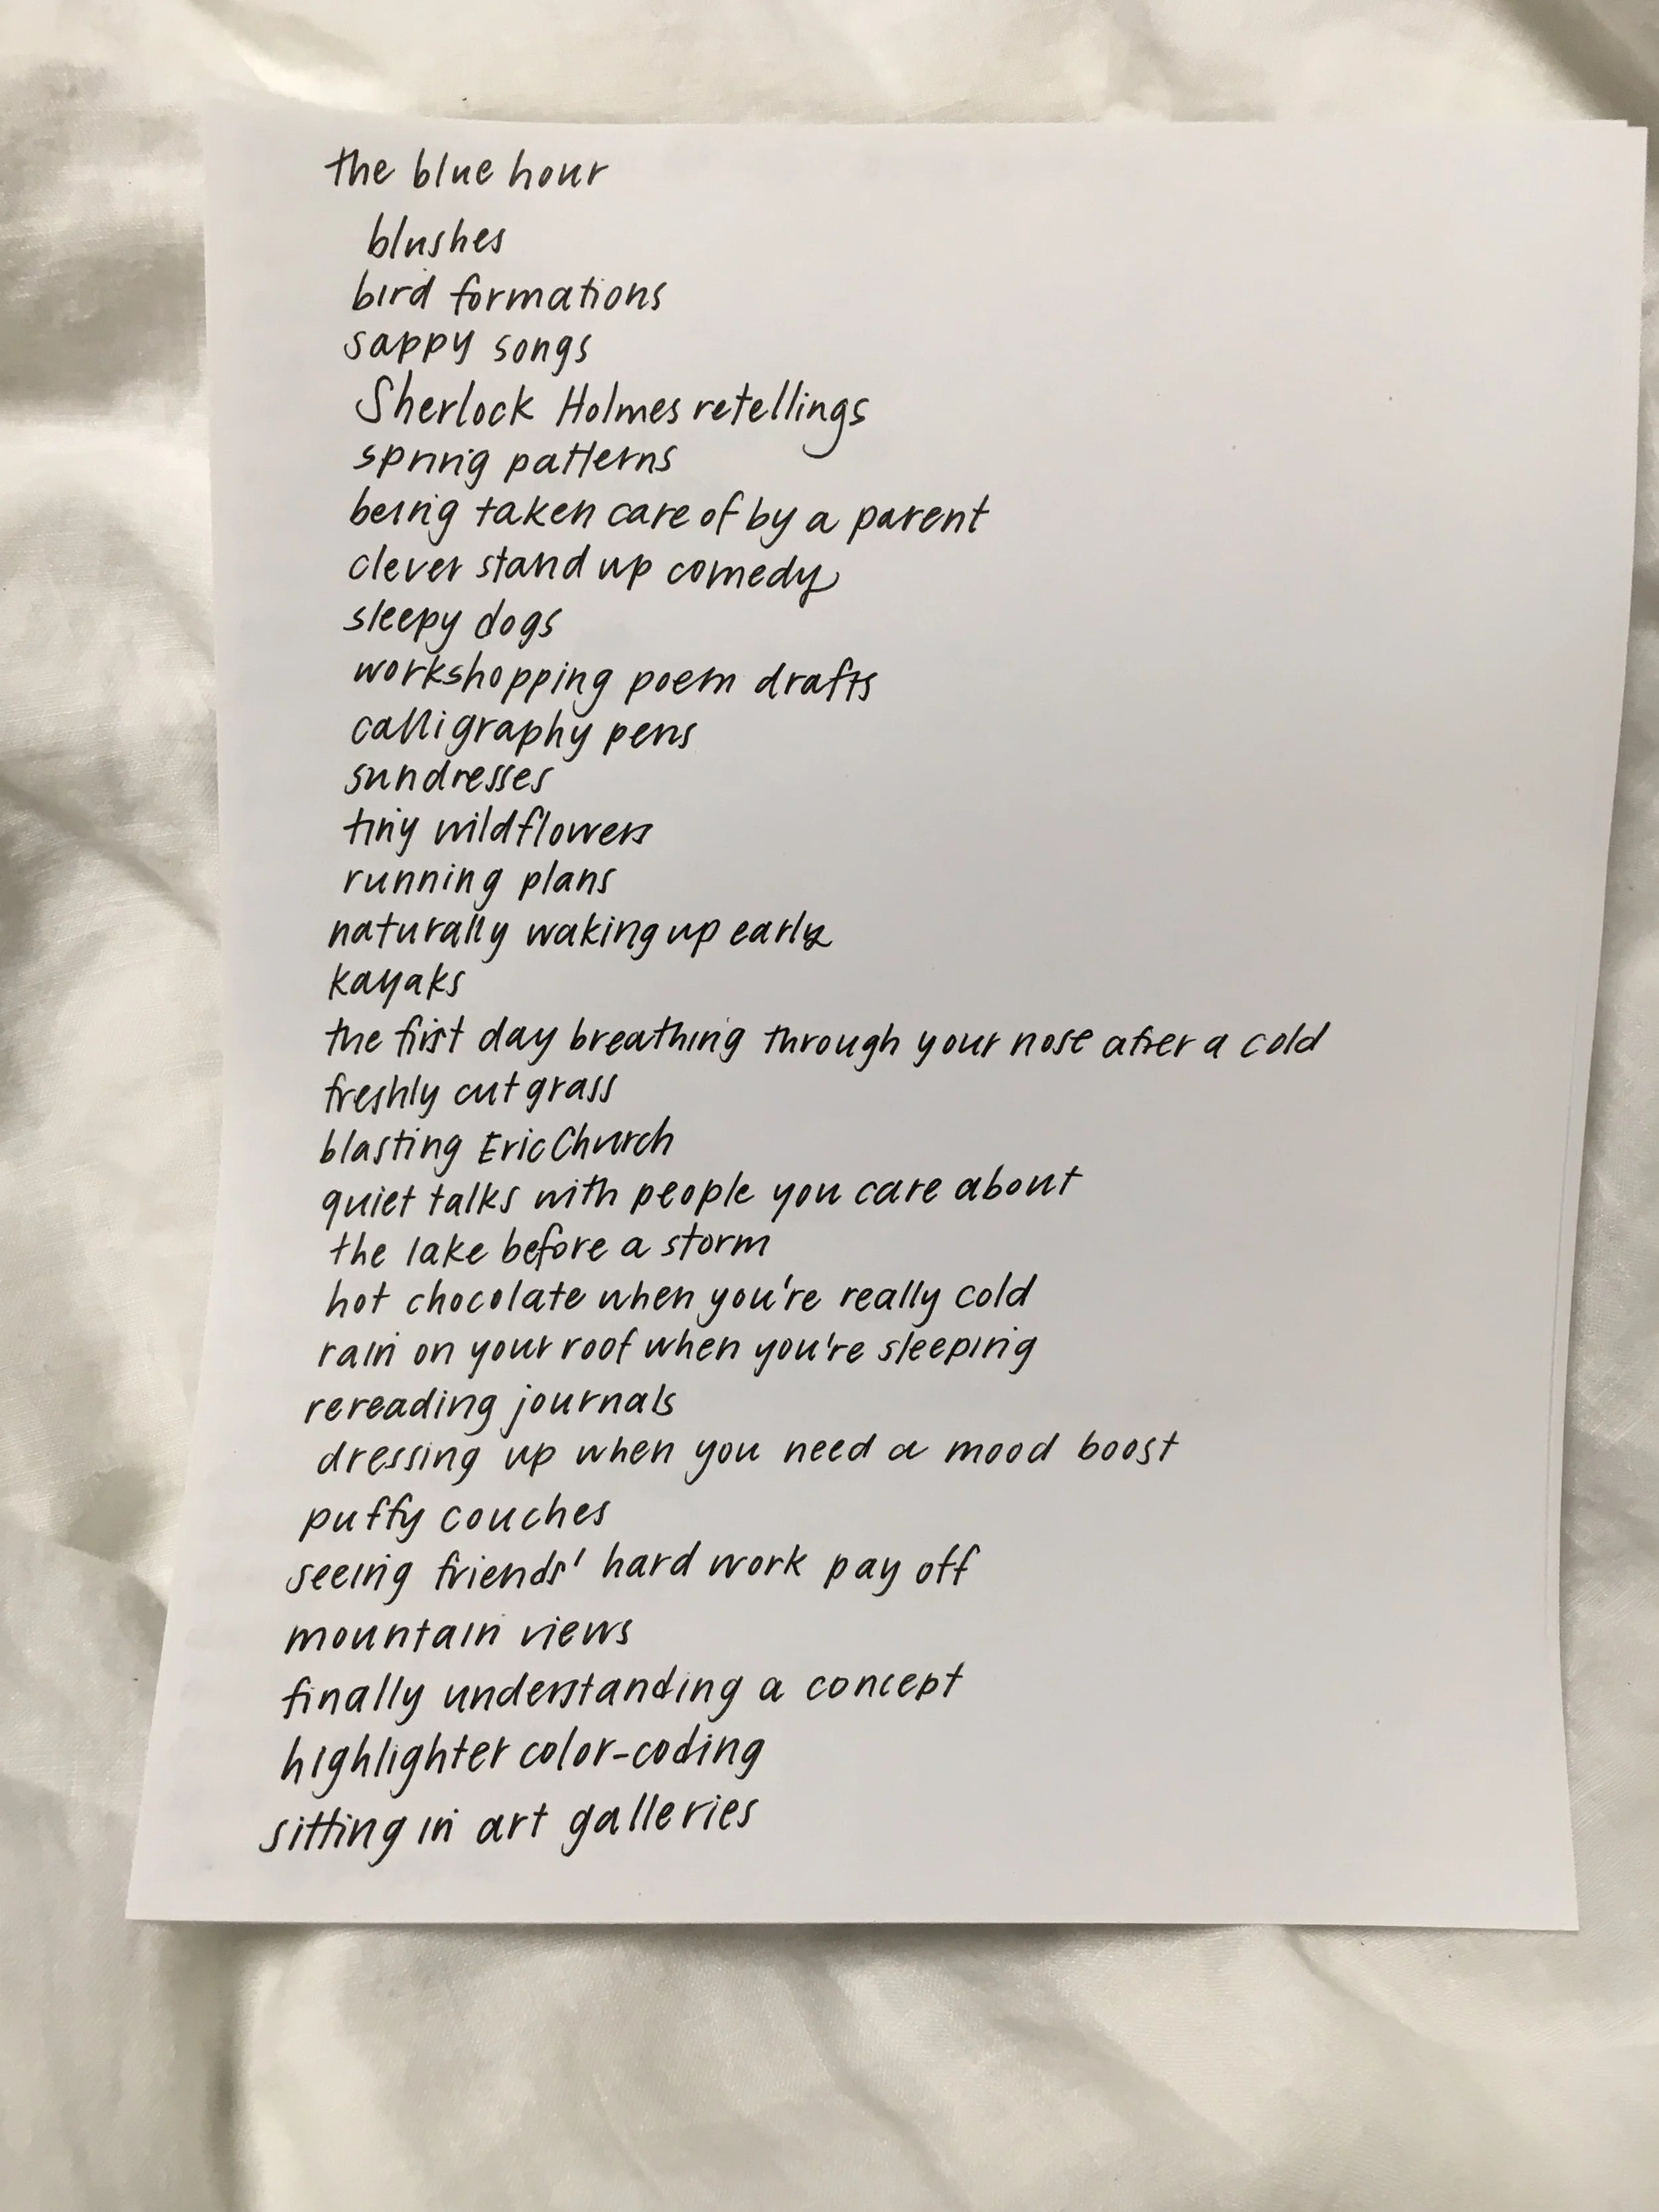 the blue hour
blushes
bird formations
sappy songs
Sherlock Holmes retellings
spring patterns
being taken care of by a parent
clever stand up comedy
sleepy dogs
workshopping poem drafts
calligraphy pens
sundresses
tiny wildflowers
running plans
naturally waking up early
kayaks
the first day breathing through your nose after a cold
freshly cut grass
blasting Eric Church
quiet talks with people you care about
the lake before a storm
hot chocolate when you're really cold
rain on your roof when you're sleeping
rereading journals
dressing up when you need a mood boost
puffy couches
seeing friends' hard work pay off
mountain views
finally understanding a concept
highlighter color-coding
sitting in art galleries